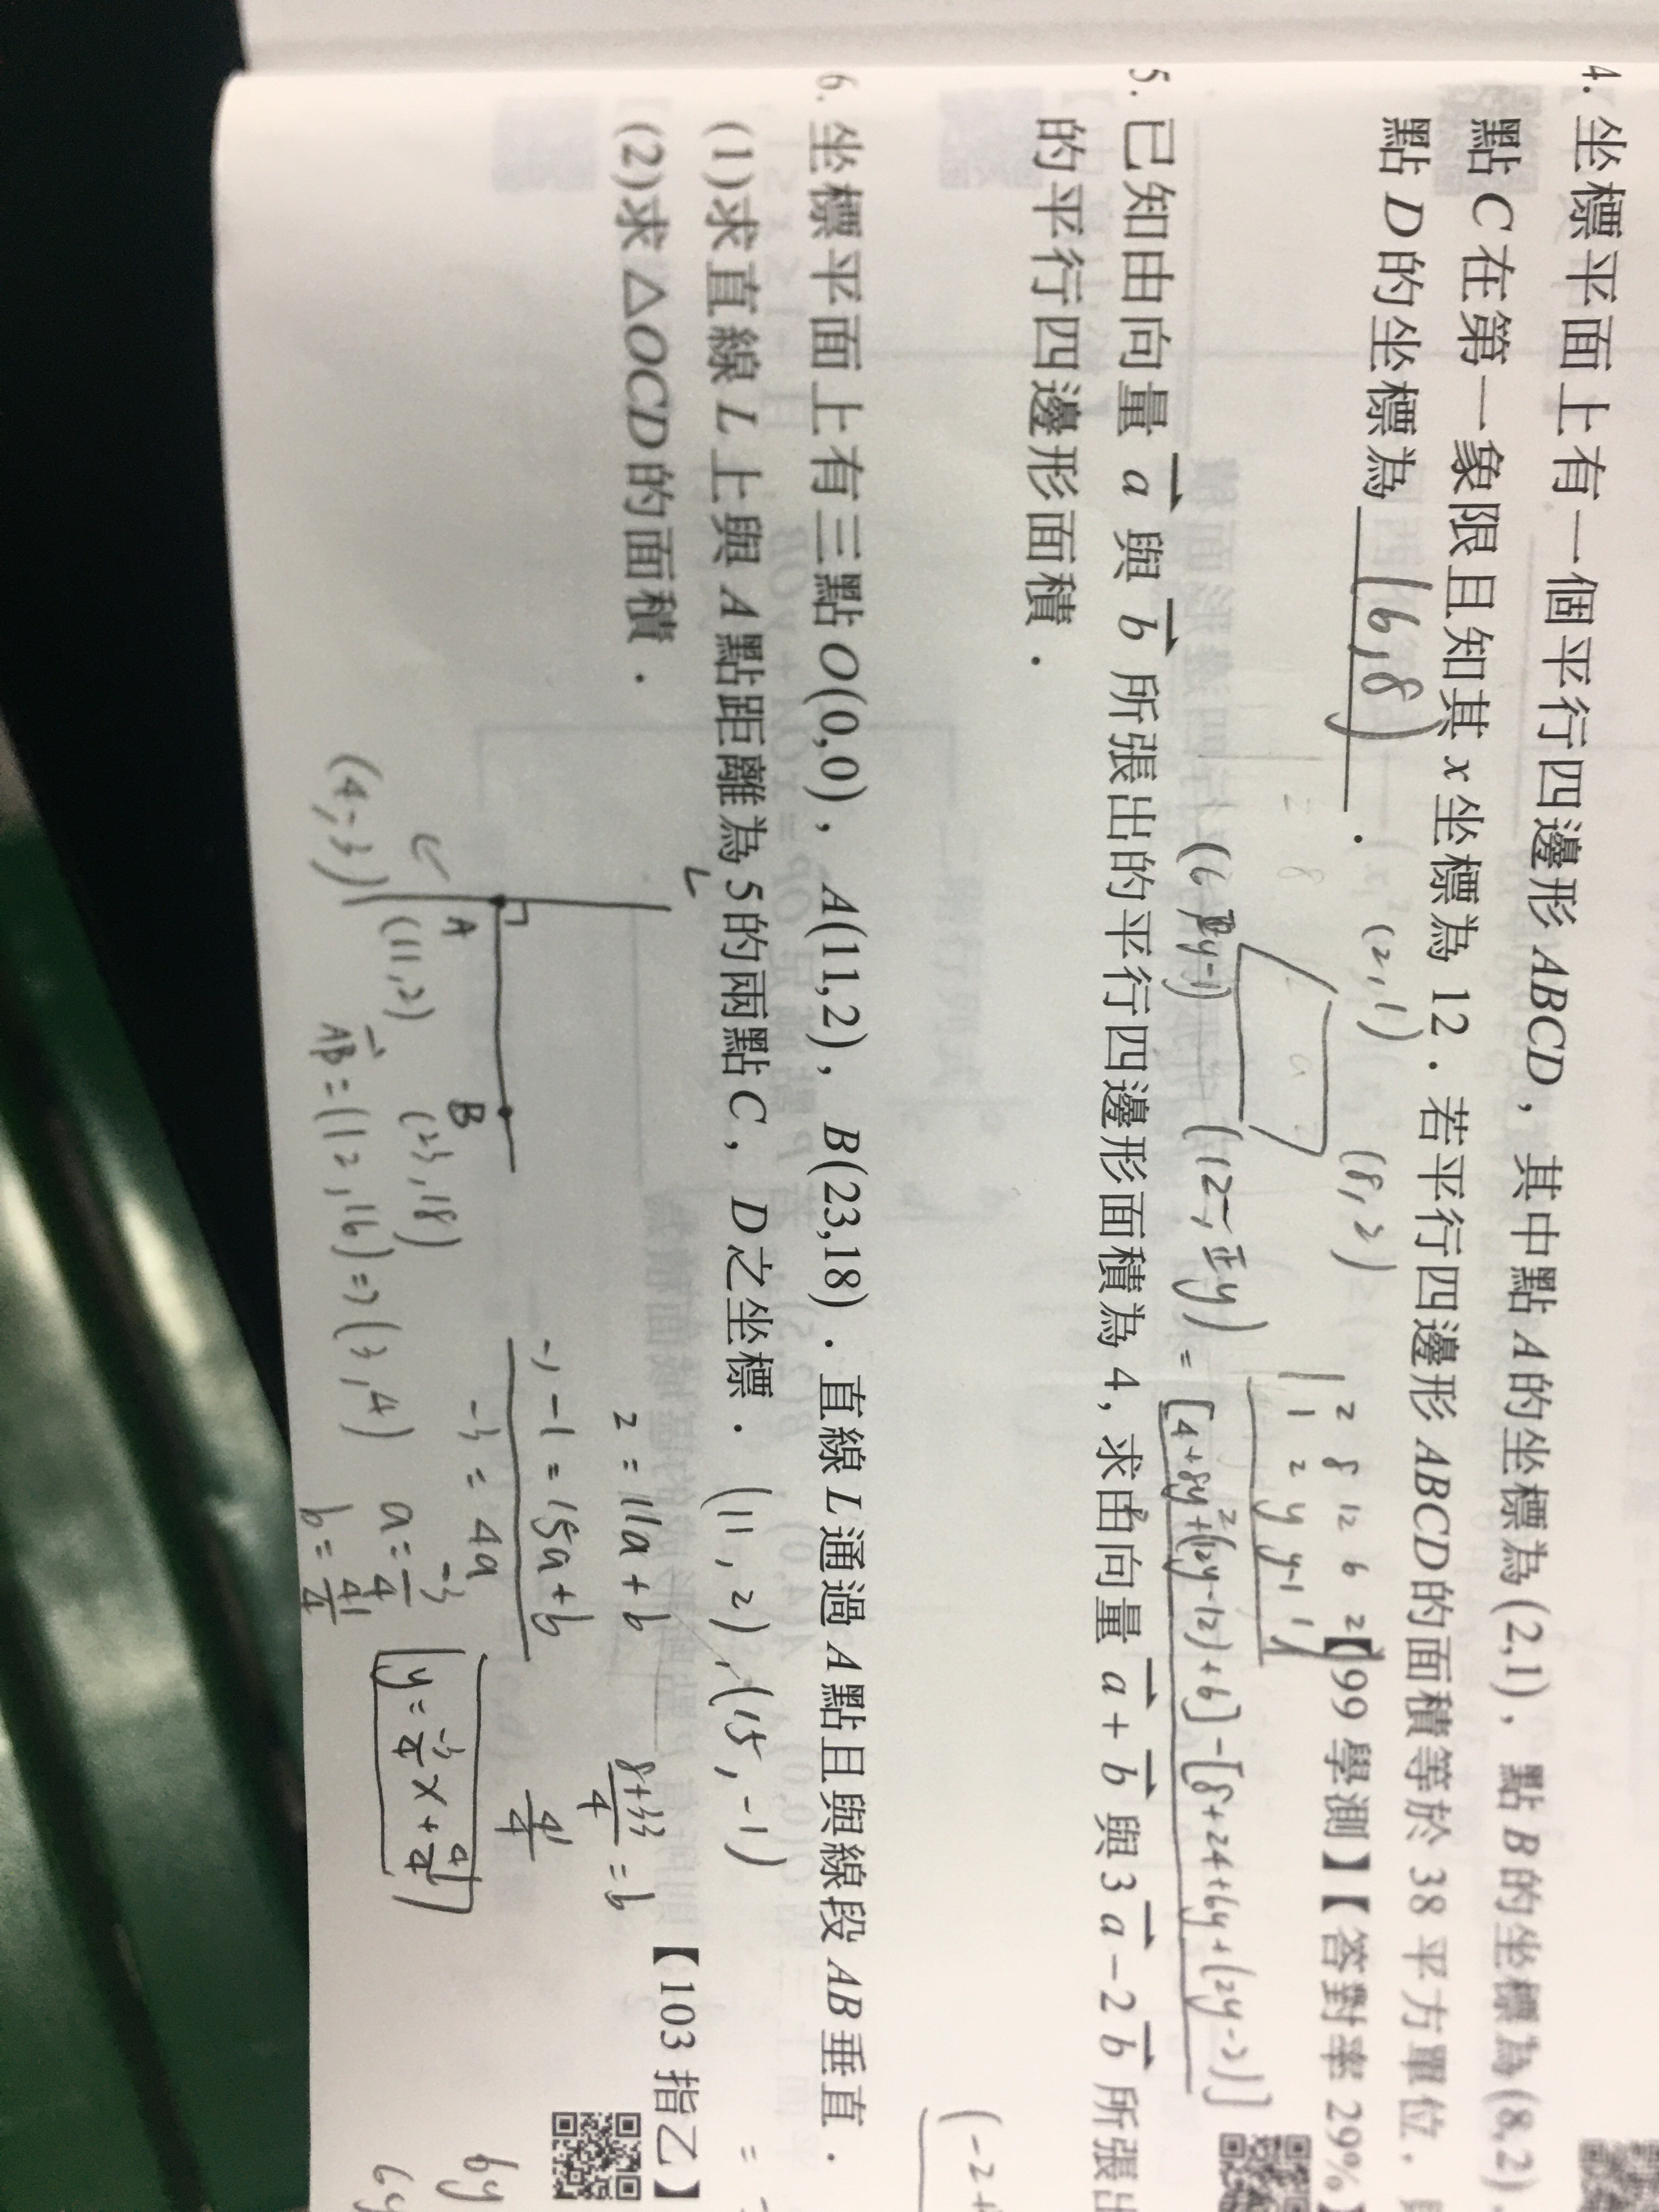 4. 坐標平面上有一個平行四邊形 ABCD，其中點 A 的坐標為 (2,1)，點 B 的坐標為 (8,2)
點 C 在第一象限且知其 x 坐標為 12．若平行四邊形 ABCD 的面積等於 38 平方單位，
點 D 的坐標為 (6,8)．
【99 學測】【答對率 29%】
(2,1) (8,2)
(6, y-1) (12, y)
2 8 12 6 2
1 2 y y-1 1
= [4+8y+(12y-12)+6]-[8+24+6y+(2y-2)]
5. 已知由向量 a 與 b 所張出的平行四邊形面積為 4，求由向量 a + b 與 3 a - 2 b 所張出
的平行四邊形面積．
(-2+
6. 坐標平面上有三點 O(0,0)，A(11,2)，B(23,18)．直線 L 通過 A 點且與線段 AB 垂直．
(1)求直線 L 上與 A 點距離為 5 的兩點 C，D 之坐標．
(11, 2), (15, -1)
(2)求 △OCD 的面積．
【103 指乙】
L
2 = 11a + b
-, -1 = 15a + b
-3 = 4a
8+33/4 = b
41/4
A B
(11,2) (23,18)
C
(4,-3)
AB = (12,16) => (3,4)
a = -3/4
b = 41/4
y = -3/4 x + 41/4
6y
6y